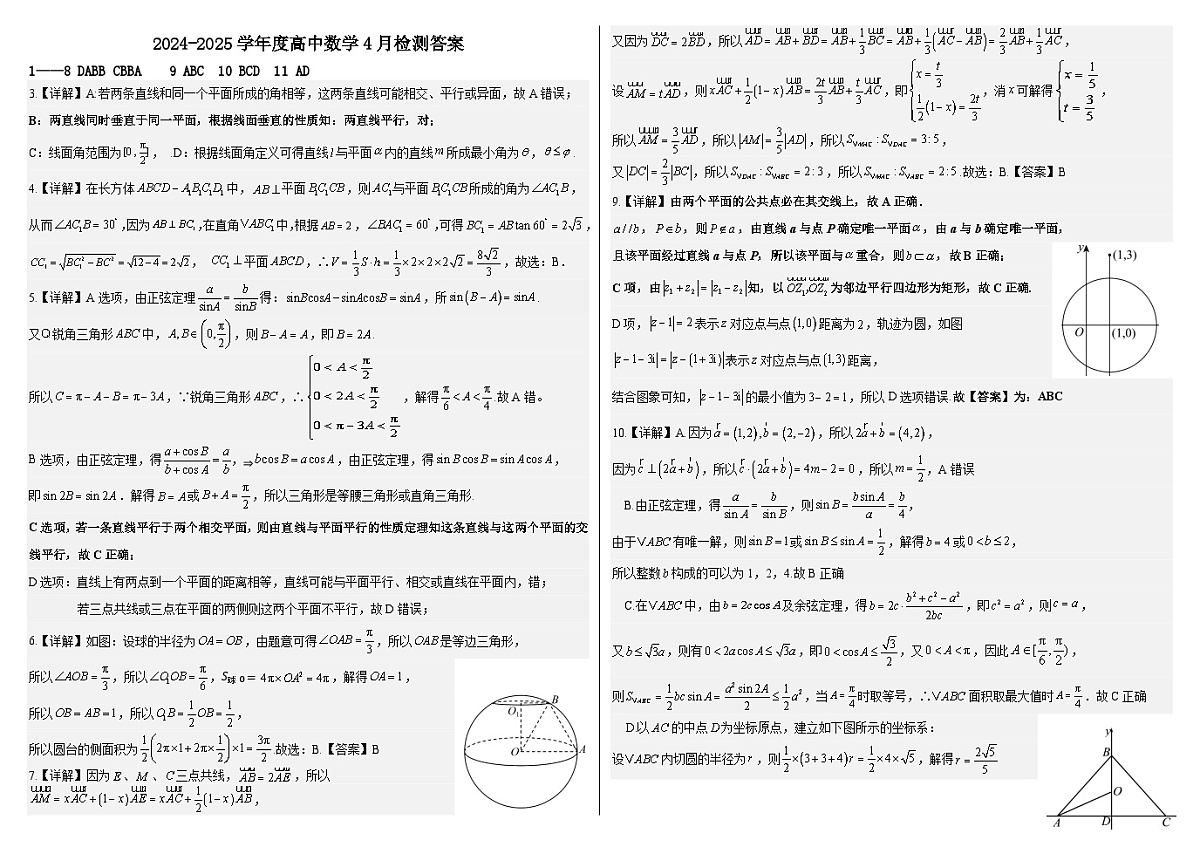 2024-2025 学年度高中数学 4 月检测答案
1——8 DABB CBBA 9 ABC 10 BCD 11 AD
3.【详解】A:若两条直线和同一个平面所成的角相等，这两条直线可能相交、平行或异面，故 A 错误；
B：两直线同时垂直于同一平面，根据线面垂直的性质知：两直线平行，对；
C：线面角范围为[0, π/2]， D：根据线面角定义可得直线 l 与平面 α 内的直线 m 所成最小角为 θ，θ ≤ φ .
4.【详解】在长方体 ABCD − A₁B₁C₁D₁ 中，AB⊥平面 B₁C₁CB，则 AC₁ 与平面 B₁C₁CB 所成的角为 ∠AC₁B，
从而 ∠AC₁B = 30°,因为 AB ⊥ BC₁,在直角 VABC₁ 中,根据 AB = 2，∠BAC₁ = 60°,可得 BC₁ = ABtan 60° = 2√3，
CC₁ = √(BC₁² − BC²) = √(12 − 4) = 2√2， CC₁⊥平面 ABCD，∴V = 1/3 S·h = 1/3 × 2 × 2 × 2√2 = 8√2/3，故选：B.
5.【详解】A 选项，由正弦定理 a/sinA = b/sinB 得：sinBcosA−sinAcosB = sinA，所 sin(B − A) = sinA.
又Q锐角三角形 ABC 中，A, B∈(0, π/2)，则 B − A = A，即 B = 2A.
所以 C = π − A − B = π − 3A，∵锐角三角形 ABC，∴ {0 < A < π/2, 0 < 2A < π/2, 0 < π − 3A < π/2，解得 π/6 < A < π/4.故 A 错。
B 选项，由正弦定理，得 (a + cos B)/(b + cos A) = a/b，⇒ bcos B = a cos A，由正弦定理，得 sin B cos B = sin A cos A，
即 sin 2B = sin 2A．解得 B = A 或 B + A = π/2，所以三角形是等腰三角形或直角三角形.
C 选项，若一条直线平行于两个相交平面，则由直线与平面平行的性质定理知这条直线与这两个平面的交
线平行，故 C 正确；
D 选项：直线上有两点到一个平面的距离相等，直线可能与平面平行、相交或直线在平面内，错；
若三点共线或三点在平面的两侧则这两个平面不平行，故 D 错误；
6.【详解】如图：设球的半径为 OA = OB，由题意可得 ∠OAB = π/3，所以 OAB 是等边三角形，
所以 ∠AOB = π/3，所以 ∠O₁OB = π/6，S球 O = 4π×OA² = 4π，解得 OA = 1，
所以 OB = AB = 1，所以 O₁B = 1/2 OB = 1/2，
所以圆台的侧面积为 1/2(2π×1 + 2π×1/2)×1 = 3π/2 故选：B.【答案】B
O₁ B O A
7.【详解】因为 E、M 、C 三点共线，AB = 2AE，所以
AM = xAC + (1 − x)AE = xAC + 1/2(1 − x)AB，
又因为 DC = 2BD，所以 AD = AB + BD = AB + 1/3 BC = AB + 1/3(AC − AB) = 2/3 AB + 1/3 AC，
设 AM = tAD，则 xAC + 1/2(1 − x)AB = 2t/3 AB + t/3 AC，即 {x = t/3, 1/2(1 − x) = 2t/3，消 x 可解得 {x = 1/5, t = 3/5，
所以 AM = 3/5 AD，所以 |AM| = 3/5 |AD|，所以 S_VMAC : S_VDAC = 3 : 5，
又 |DC| = 2/3 |BC|，所以 S_VDAC : S_VABC = 2 : 3，所以 S_VMAC : S_VABC = 2 : 5.故选：B.【答案】B
9.【详解】由两个平面的公共点必在其交线上，故 A 正确.
a//b，P∈b，则 P∉a，由直线 a 与点 P 确定唯一平面 α，由 a 与 b 确定唯一平面，
且该平面经过直线 a 与点 P，所以该平面与 α 重合，则 b⊂α，故 B 正确；
C 项，由 |z₁ + z₂| = |z₁ − z₂| 知，以 OZ₁,OZ₂ 为邻边平行四边形为矩形，故 C 正确.
D 项，|z − 1| = 2 表示 z 对应点与点 (1,0) 距离为 2，轨迹为圆，如图
|z − 1 − 3i| = |z − (1 + 3i)| 表示 z 对应点与点 (1,3) 距离，
y (1,3) O (1,0)
结合图象可知，|z − 1 − 3i| 的最小值为 3 − 2 = 1，所以 D 选项错误.故【答案】为：ABC
10.【详解】A.因为 a = (1,2), b = (2,−2)，所以 2a + b = (4,2)，
因为 c ⊥ (2a + b)，所以 c·(2a + b) = 4m − 2 = 0，所以 m = 1/2，A 错误
B.由正弦定理，得 a/sin A = b/sin B，则 sin B = bsin A/a = b/4，
由于 VABC 有唯一解，则 sin B = 1 或 sin B ≤ sin A = 1/2，解得 b = 4 或 0 < b ≤ 2，
所以整数 b 构成的可以为 1，2，4.故 B 正确
C.在 VABC 中，由 b = 2c cos A 及余弦定理，得 b = 2c · (b² + c² − a²)/2bc，即 c² = a²，则 c = a，
又 b ≤ √3a，则有 0 < 2a cos A ≤ √3a，即 0 < cos A ≤ √3/2，又 0 < A < π，因此 A∈[π/6, π/2)，
则 S_VABC = 1/2 bc sin A = a² sin 2A/2 ≤ 1/2 a²，当 A = π/4 时取等号，∴VABC 面积取最大值时 A = π/4．故 C 正确
D 以 AC 的中点 D 为坐标原点，建立如下图所示的坐标系：
设 VABC 内切圆的半径为 r，则 1/2 × (3 + 3 + 4)r = 1/2 × 4 × √5，解得 r = 2√5/5
y B O A D C